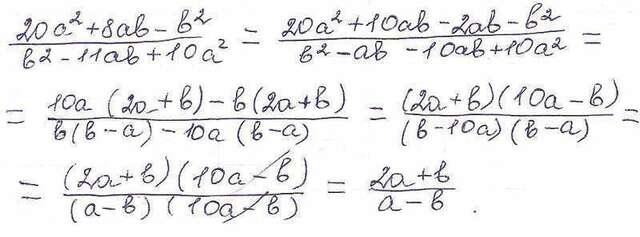 (20a² + 8ab - b²)/(b² - 11ab + 10a²) = (20a² + 10ab - 2ab - b²)/(b² - ab - 10ab + 10a²) =
= (10a (2a + b) - b (2a + b))/(b (b - a) - 10a (b - a)) = ((2a + b) (10a - b))/((b - 10a) (b - a)) =
= ((2a + b) (10a - b))/((a - b) (10a - b)) = (2a + b)/(a - b) .